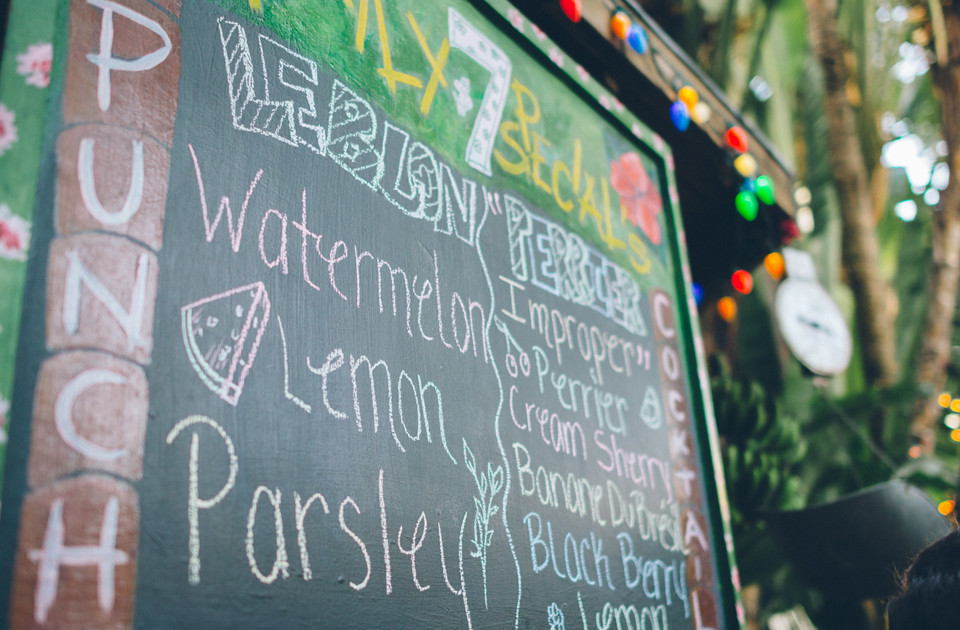 ILY 7 SPECIALS
PUNCH
LEBLON
Watermelon
Lemon
Parsley
"PERRIER
Improper"
Perrier
Cream Sherry
Banane DuBresil
Black Berry
Lemon
COCKTAIL